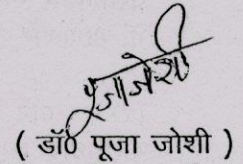 पूजा जोशी
( डॉ0 पूजा जोशी )